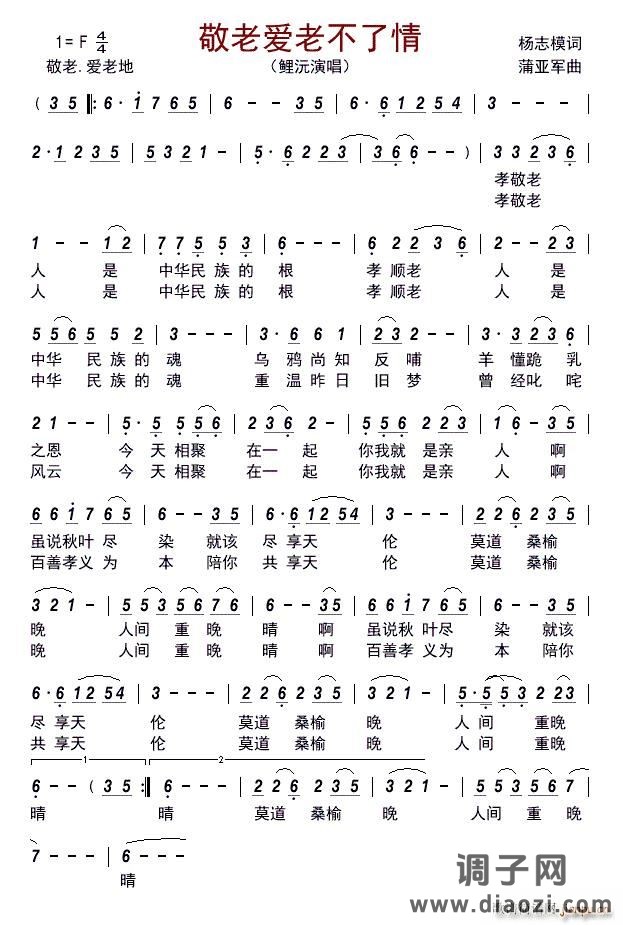 敬老爱老不了情
1= F 4/4
杨志模词
敬老.爱老地
（鲤沅演唱）
蒲亚军曲
( 3 5 ‖: 6 · 6 1 7 6 5 | 6 - - 3 5 | 6 · 6 1 2 5 4 | 3 - - - |
2 · 1 2 3 5 | 5 3 2 1 - | 5 · 6 2 2 3 | 3 6 6 - - ) | 3 3 2 3 6 |
孝敬老
孝敬老
1 - - 1 2 | 7 7 5 5 · 3 | 6 - - - | 6 2 2 3 6 | 2 - - 2 3 |
人 是 中华民 族 的 根 孝 顺老 人 是
人 是 中华民 族 的 根 孝 顺老 人 是
5 5 6 5 5 2 | 3 - - - | 3 · 6 6 1 | 2 3 2 - | 3 · 3 2 3 6 |
中华 民 族 的 魂 乌 鸦尚知 反 哺 羊 懂跪 乳
中华 民 族 的 魂 重 温昨日 旧 梦 曾 经叱 咤
2 1 - - | 5 · 5 5 5 6 | 2 3 6 2 - | 5 5 5 6 2 3 | 1 6 - - |
之恩 今 天 相聚 在一 起 你我就 是亲 人 啊
风云 今 天 相聚 在一 起 你我就 是亲 人 啊
6 6 1 7 6 5 | 6 - - 3 5 | 6 · 6 1 2 5 4 | 3 - - - | 2 2 6 2 3 5 |
虽说秋叶 尽 染 就该 尽 享天 伦 莫道 桑榆
百善孝义 为 本 陪你 共 享天 伦 莫道 桑榆
3 2 1 - | 5 5 3 5 6 7 6 | 6 - - 3 5 | 6 6 1 7 6 5 | 6 - - 3 5 |
晚 人间 重 晚 晴 啊 虽说秋 叶尽 染 就该
晚 人间 重 晚 晴 啊 百善孝 义为 本 陪你
6 · 6 1 2 5 4 | 3 - - - | 2 2 6 2 3 5 | 3 2 1 - | 5 · 5 5 3 2 2 3 |
尽 享天 伦 莫道 桑榆 晚 人 间 重晚
共 享天 伦 莫道 桑榆 晚 人 间 重晚
1. 2
6 - - ( 3 5 :‖ 6 - - - | 2 2 6 2 3 5 | 3 2 1 - | 5 5 3 5 6 7 |
晴 晴 莫道 桑榆 晚 人间 重 晚
7 - - | 6 - - - ‖
晴
调子网
www.diaozi.com